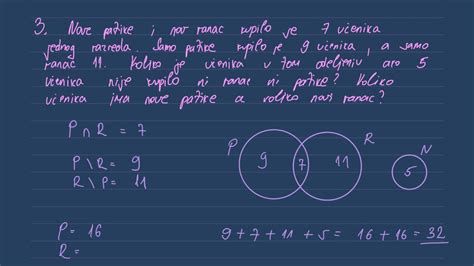 3. Nove patike i nov ranac kupilo je 7 učenika
jednog razreda. Samo patike kupilo je 9 učenika, a samo
ranac 11. Koliko je učenika u tom odeljenju ako 5
učenika nije kupilo ni ranac ni patike? Koliko
učenika ima nove patike a koliko novi ranac?
P ∩ R = 7
P \ R = 9
R \ P = 11
P 9 7 11 R
N 5
P = 16
R =
9 + 7 + 11 + 5 = 16 + 16 = 32